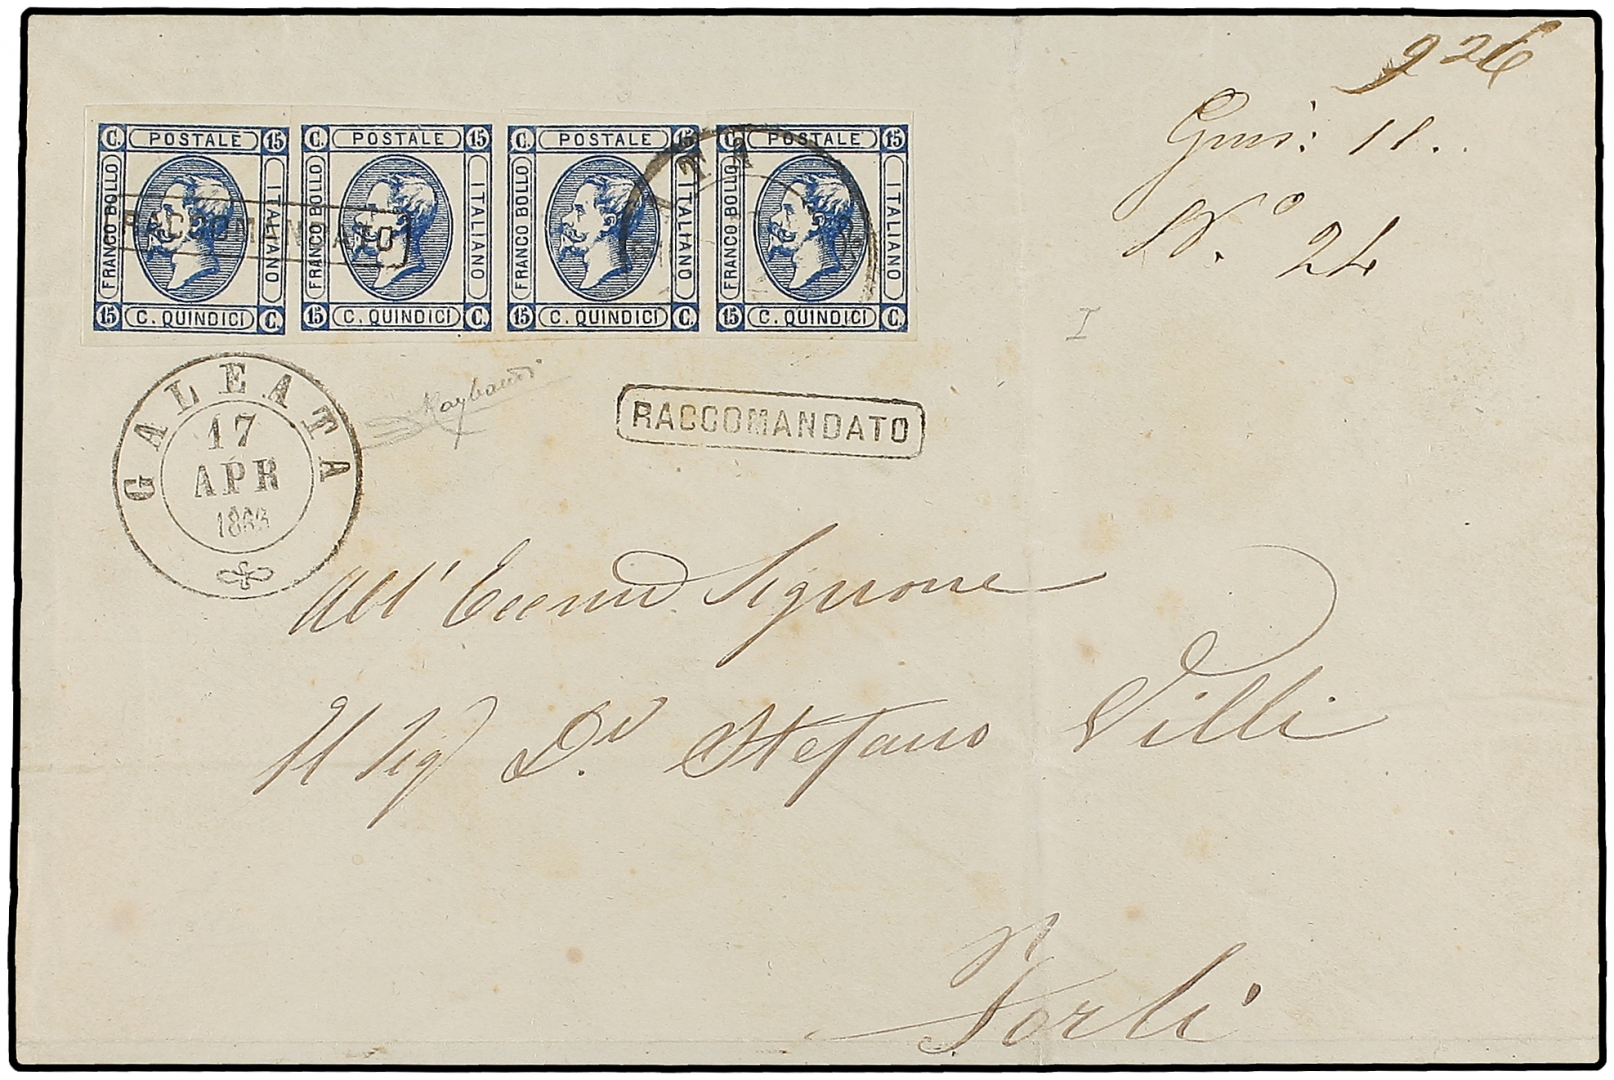 926
Gmi: 11..
N.° 24
C. POSTALE 15 C. POSTALE 15 C. POSTALE 15 C. POSTALE 15
FRANCO BOLLO ITALIANO FRANCO BOLLO ITALIANO FRANCO BOLLO ITALIANO FRANCO BOLLO ITALIANO
RACCOMANDATO
15 C. QUINDICI C. 15 C. QUINDICI C. 15 C. QUINDICI C. 15 C. QUINDICI C.
I
GALEATA
17
APR
1863
Raybaudi
RACCOMANDATO
All' Signore
Il Sig. D.r Stefano Villi
Forlì